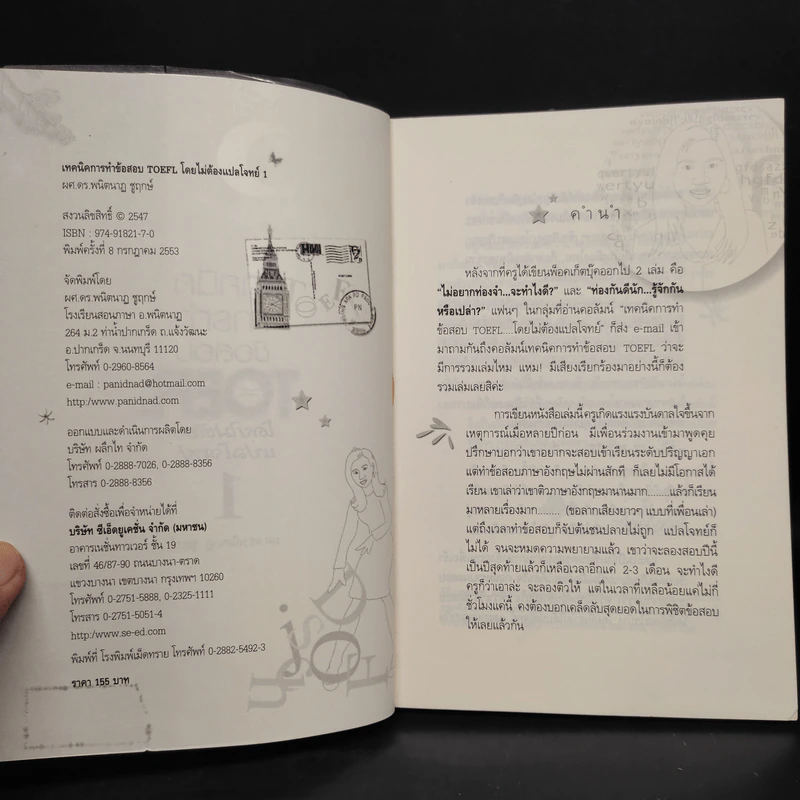 เทคนิคการทำข้อสอบ TOEFL โดยไม่ต้องแปลโจทย์ 1
ผศ.ดร.พนิตนาฏ ชูฤกษ์
สงวนลิขสิทธิ์ © 2547
ISBN : 974-91821-7-0
พิมพ์ครั้งที่ 8 กรกฎาคม 2553
จัดพิมพ์โดย
ผศ.ดร.พนิตนาฏ ชูฤกษ์
โรงเรียนสอนภาษา อ.พนิตนาฏ
264 ม.2 ท่าน้ำปากเกร็ด ถ.แจ้งวัฒนะ
อ.ปากเกร็ด จ.นนทบุรี 11120
โทรศัพท์ 0-2960-8564
e-mail : panidnad@hotmail.com
http:/www.panidnad.com
ออกแบบและดำเนินการผลิตโดย
บริษัท ผลึกไท จำกัด
โทรศัพท์ 0-2888-7026, 0-2888-8356
โทรสาร 0-2888-8356
ติดต่อสั่งซื้อเพื่อจำหน่ายได้ที่
บริษัท ซีเอ็ดยูเคชั่น จำกัด (มหาชน)
อาคารเนชั่นทาวเวอร์ ชั้น 19
เลขที่ 46/87-90 ถนนบางนา-ตราด
แขวงบางนา เขตบางนา กรุงเทพฯ 10260
โทรศัพท์ 0-2751-5888, 0-2325-1111
โทรสาร 0-2751-5051-4
http:/www.se-ed.com
พิมพ์ที่ โรงพิมพ์เม็ดทราย โทรศัพท์ 0-2882-5492-3
ราคา 155 บาท
คำนำ
หลังจากที่ครูได้เขียนพ็อคเก็ตบุ๊คออกไป 2 เล่ม คือ
"ไม่อยากท่องจำ...จะทำไงดี?" และ "ท่องกันดีนัก...รู้จักกัน
หรือเปล่า?" แฟนๆ ในกลุ่มที่อ่านคอลัมน์ "เทคนิคการทำ
ข้อสอบ TOEFL....โดยไม่ต้องแปลโจทย์" ก็ส่ง e-mail เข้า
มาถามกันถึงคอลัมน์เทคนิคการทำข้อสอบ TOEFL ว่าจะ
มีการรวมเล่มไหม แหม! มีเสียงเรียกร้องมาอย่างนี้ก็ต้อง
รวมเล่มเลยสิค่ะ
การเขียนหนังสือเล่มนี้ครูเกิดแรงแรงบันดาลใจขึ้นจาก
เหตุการณ์เมื่อหลายปีก่อน มีเพื่อนร่วมงานเข้ามาพูดคุย
ปรึกษาบอกว่าเขาอยากจะสอบเข้าเรียนระดับปริญญาเอก
แต่ทำข้อสอบภาษาอังกฤษไม่ผ่านสักที ก็เลยไม่มีโอกาสได้
เรียน เขาเล่าว่าเขาติวภาษาอังกฤษมานานมาก........แล้วก็เรียน
มาหลายเรื่องมาก....... (ขอลากเสียงยาวๆ แบบที่เพื่อนเล่า)
แต่ถึงเวลาทำข้อสอบก็จับต้นชนปลายไม่ถูก แปลโจทย์ก็
ไม่ได้ จนจะหมดความพยายามแล้ว เขาว่าจะลองสอบปีนี้
เป็นปีสุดท้ายแล้วก็เหลือเวลาอีกแค่ 2-3 เดือน จะทำไงดี
ครูก็ว่าเอาล่ะ จะลองติวให้ แต่ในเวลาที่เหลือน้อยแค่ไม่กี่
ชั่วโมงแค่นี้ คงต้องบอกเคล็ดลับสุดยอดในการพิชิตข้อสอบ
ให้เลยแล้วกัน